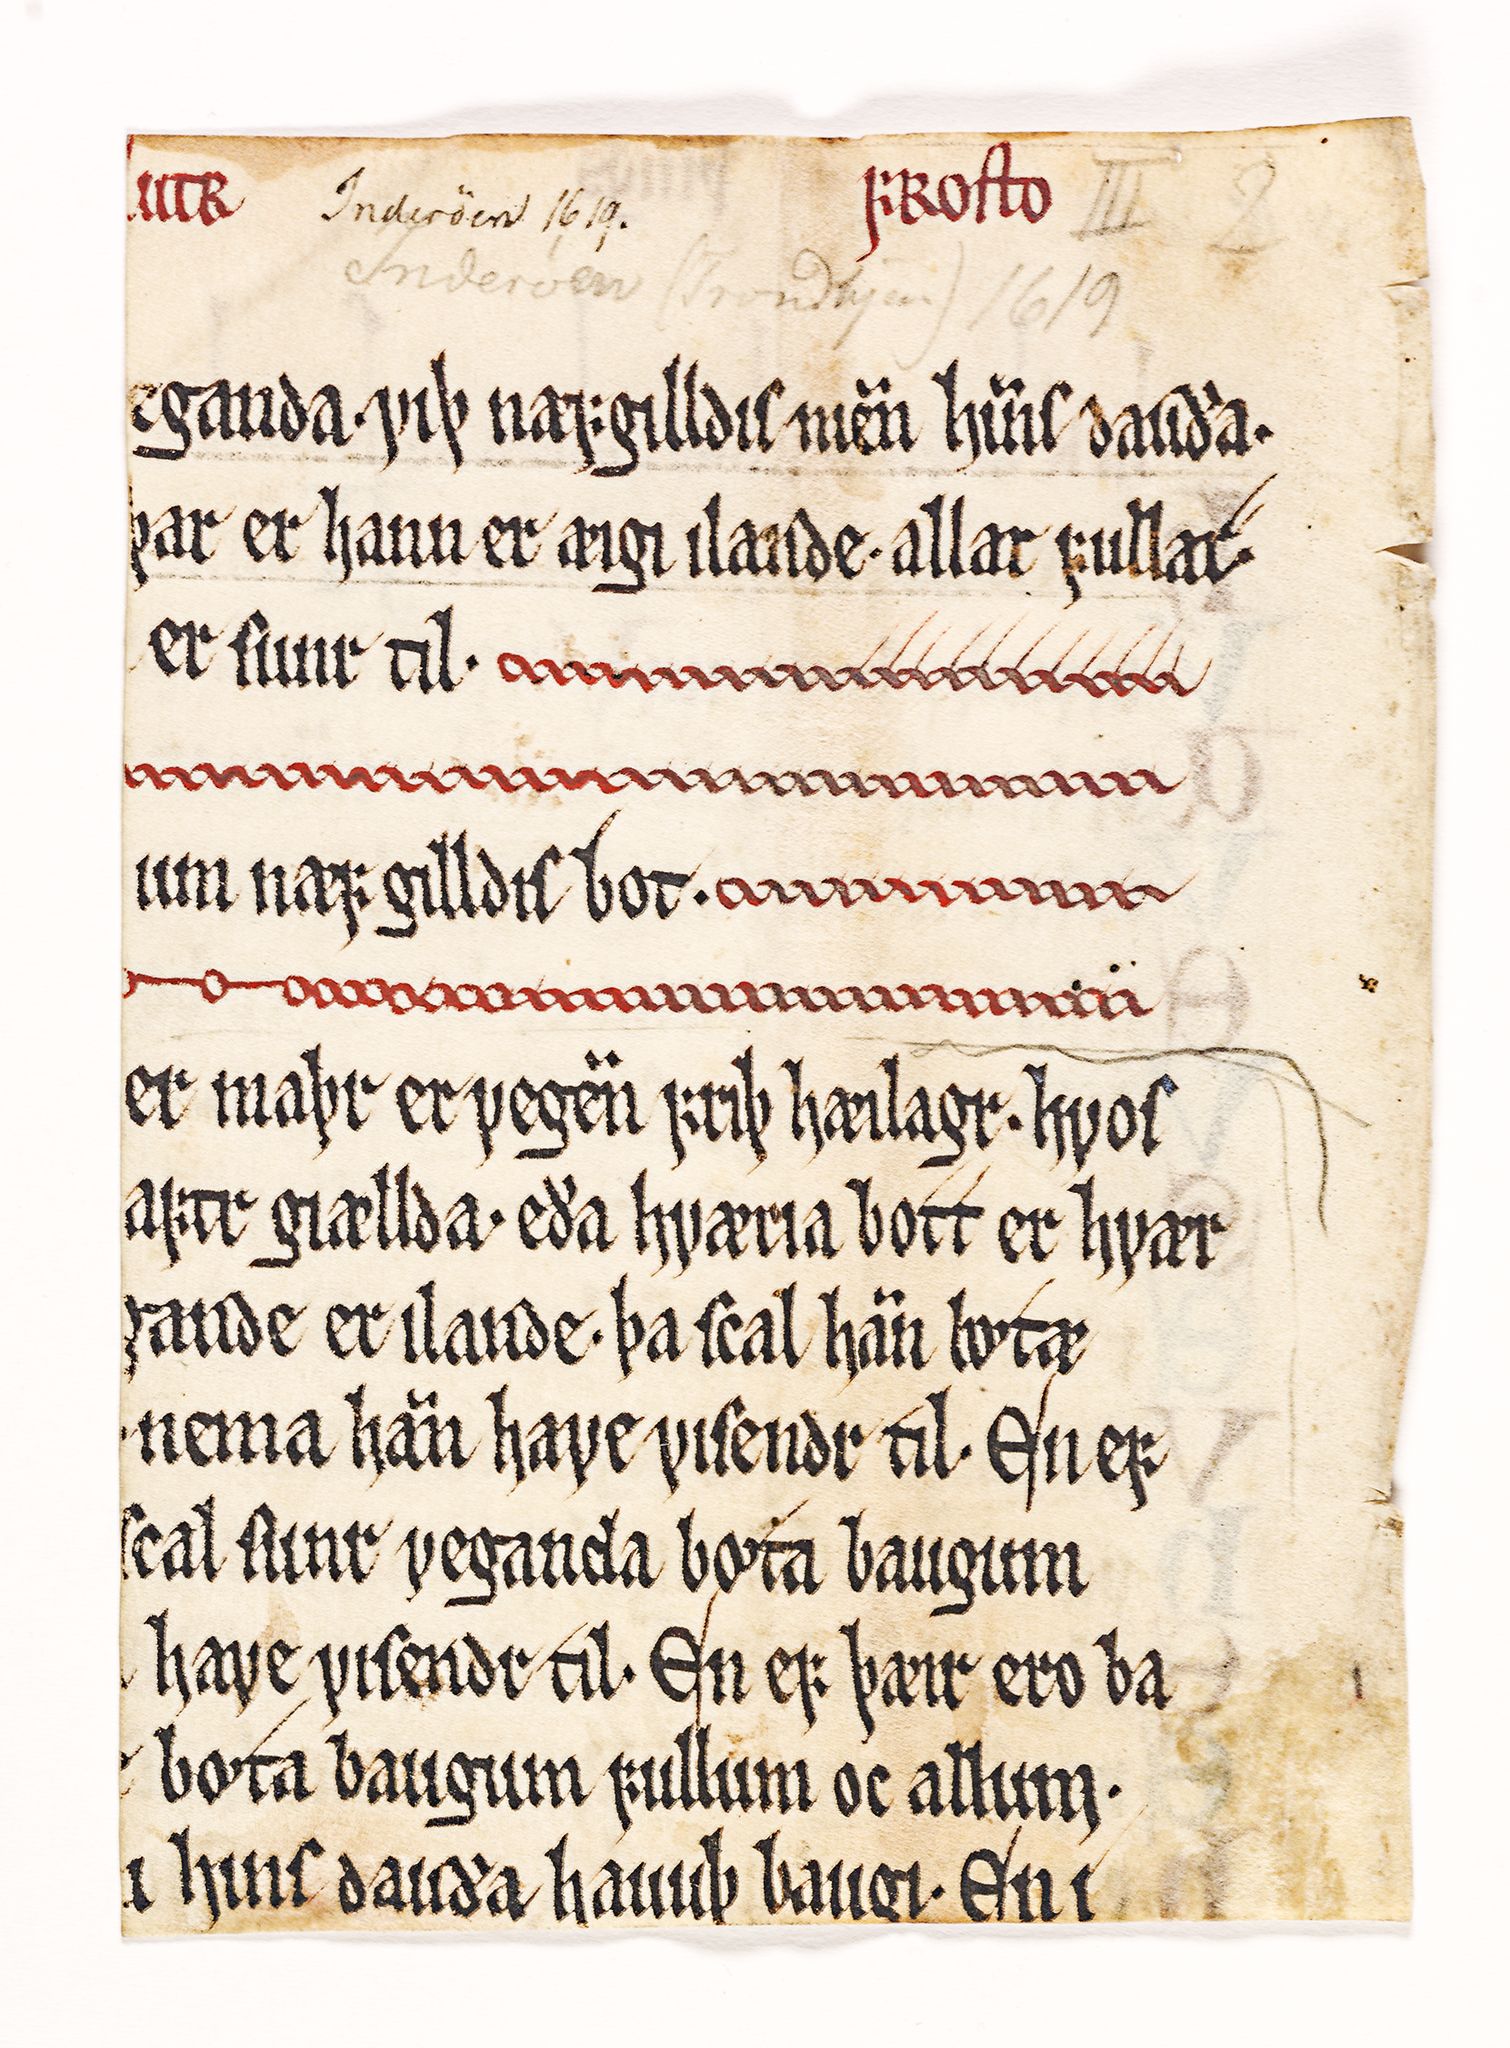 uTR Inderöen 1619. ꝼRoſto III 2
Inderöen (Trondhjem) 1619
eganda. ƿiþ næꝼgilldiſ men̈ hinſ̈ dauða.
þar er hann er æigi ilande. allar ꝼullar.
er ſunr til.
um næꝼgilldiſ bot.
er maþr er ƿegen̈ ꝼriþ hæilagr. hƿoſ
aꝼtr giællda. eða hƿæria bott er hƿær
gande er ilande. þa ſcal han̈ bøtæ
nema han̈ haƿe ƿiſendr til. En eꝼ
ſcal ſunr ƿeganda bøta baugum
haƿe ƿiſendr til. En eꝼ þæir ero ba
bøta baugum ꝼullum oc allum.
hinſ dauða hauuþ baugi. En i